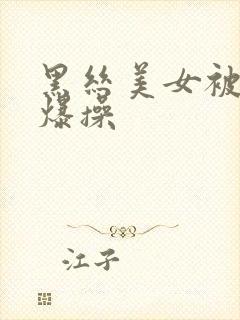 黑丝美女被
爆操
江子